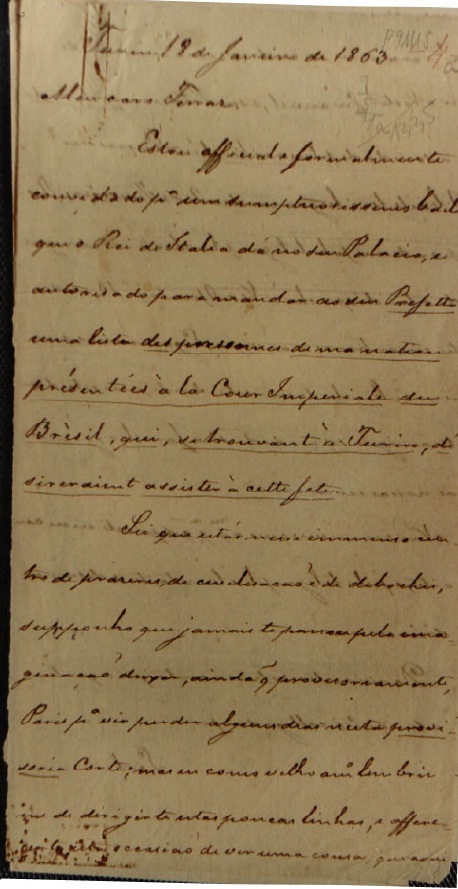 Turin 19 de Janeiro de 1863
Meu caro Ferraz.
Estou official e formalmente
convidado pª um sumptuosissimo baile
que o Rei de Italia dá no seu Palacio, e
autorisado para mandar ao seu Prefetto
uma lista des personnes de ma nation
présentées à la Cour Imperiale du
Brèsil, qui, se trouvant à Turin, dé
sireraient assister à cette fete.
Sei que estás nesse immenso cen
tro de prazeres, de civilisação e de deboches,
supponho que jamais te passou pela ima
ginação deixar, ainda q provisoriamente,
Paris pª vir perder alguns dias nesta provi
soria Corte; mas eu como velho amº lembrei
me de dirigir te estas poucas linhas, e offere
occasião de ver uma cousa, que